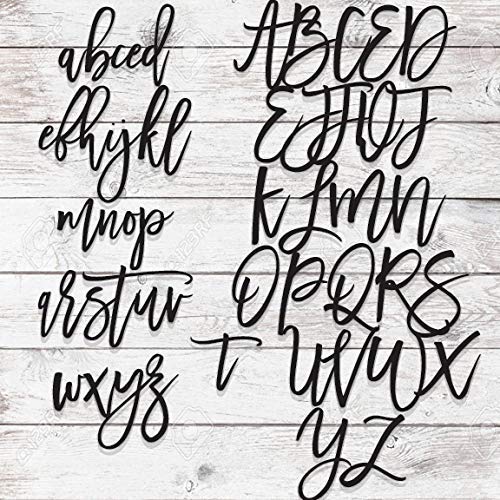 abced
efhijkl
mnop
arstuv
wxyz
ABCED
KLMN
OPQRS
T UVWX
YZ